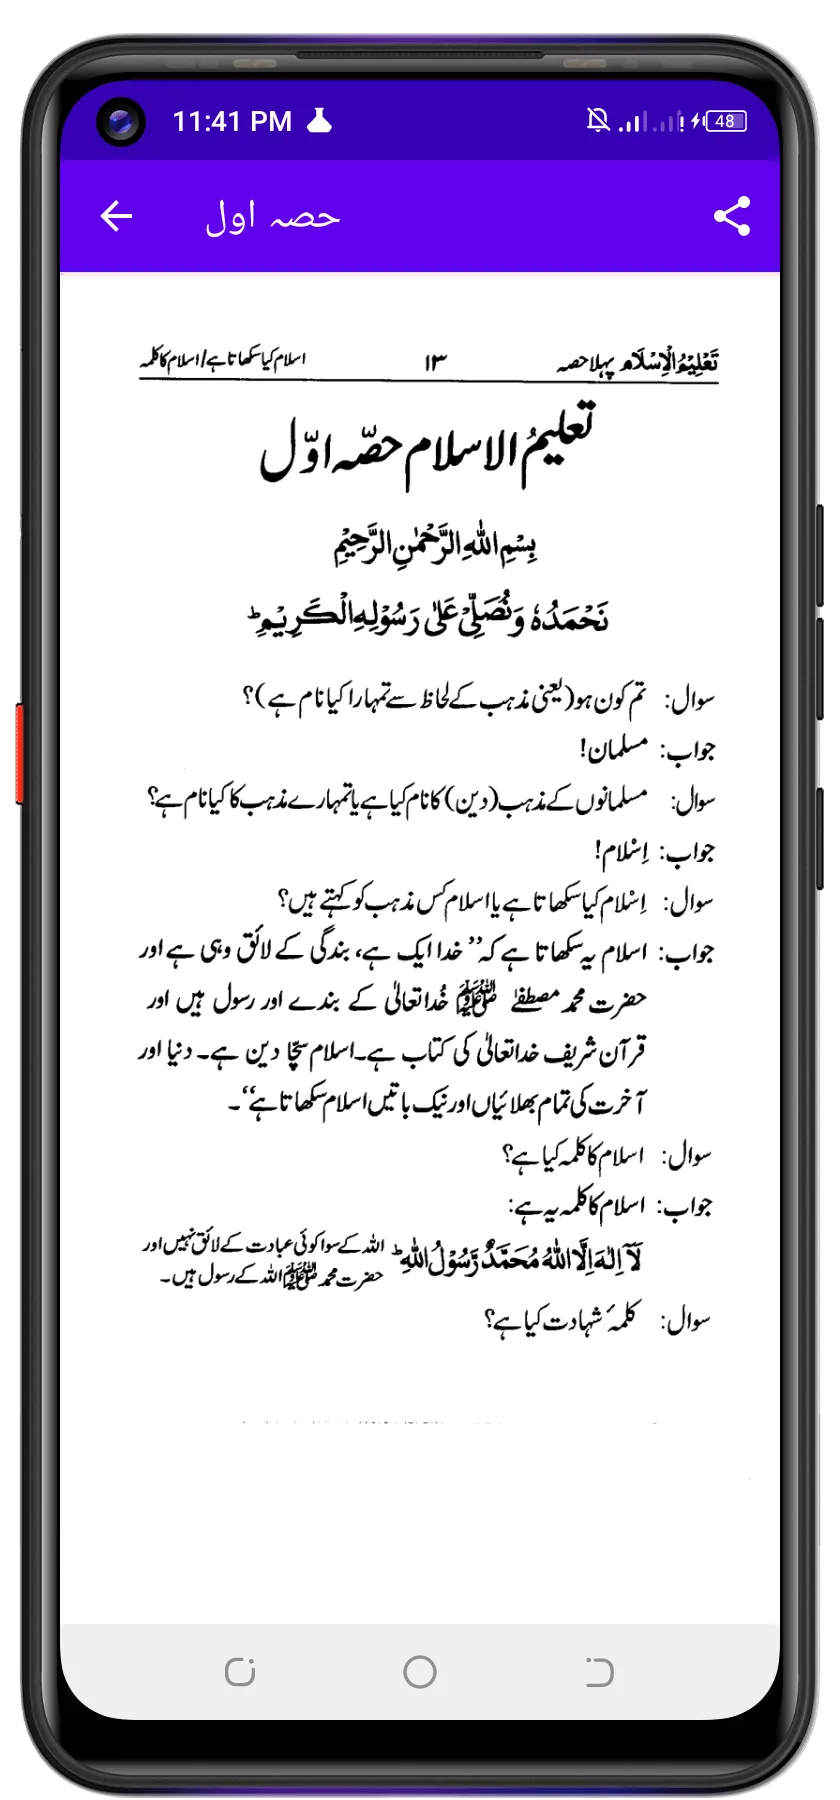 11:41 PM
48
حصہ اول
تَعْلِیْمُ الْاِسْلَام پہلا حصہ ۱۳ اسلام کیا سکھاتا ہے/اسلام کا کلمہ
تعلیمُ الاسلام حصّہ اوّل
بِسْمِ اللهِ الرَّحْمٰنِ الرَّحِیْمِ
نَحْمَدُهٗ وَنُصَلِّیْ عَلٰی رَسُوْلِهِ الْکَرِیْمِ ؕ
سوال: تم کون ہو (یعنی مذہب کے لحاظ سے تمہارا کیا نام ہے)؟
جواب: مسلمان!
سوال: مسلمانوں کے مذہب (دین) کا نام کیا ہے یا تمہارے مذہب کا کیا نام ہے؟
جواب: اِسْلام!
سوال: اِسْلام کیا سکھاتا ہے یا اسلام کس مذہب کو کہتے ہیں؟
جواب: اسلام یہ سکھاتا ہے کہ ’’خدا ایک ہے، بندگی کے لائق وہی ہے اور
حضرت محمد مصطفےٰ ﷺ خُدا تعالیٰ کے بندے اور رسول ہیں اور
قرآن شریف خدا تعالیٰ کی کتاب ہے۔ اسلام سچّا دین ہے۔ دنیا اور
آخرت کی تمام بھلائیاں اور نیک باتیں اسلام سکھاتا ہے‘‘۔
سوال: اسلام کا کلمہ کیا ہے؟
جواب: اسلام کا کلمہ یہ ہے:
لَآ اِلٰهَ اِلَّا اللهُ مُحَمَّدٌ رَّسُوْلُ اللهِ ؕ اللہ کے سوا کوئی عبادت کے لائق نہیں اور
حضرت محمد ﷺ اللہ کے رسول ہیں۔
سوال: کلمۂ شہادت کیا ہے؟